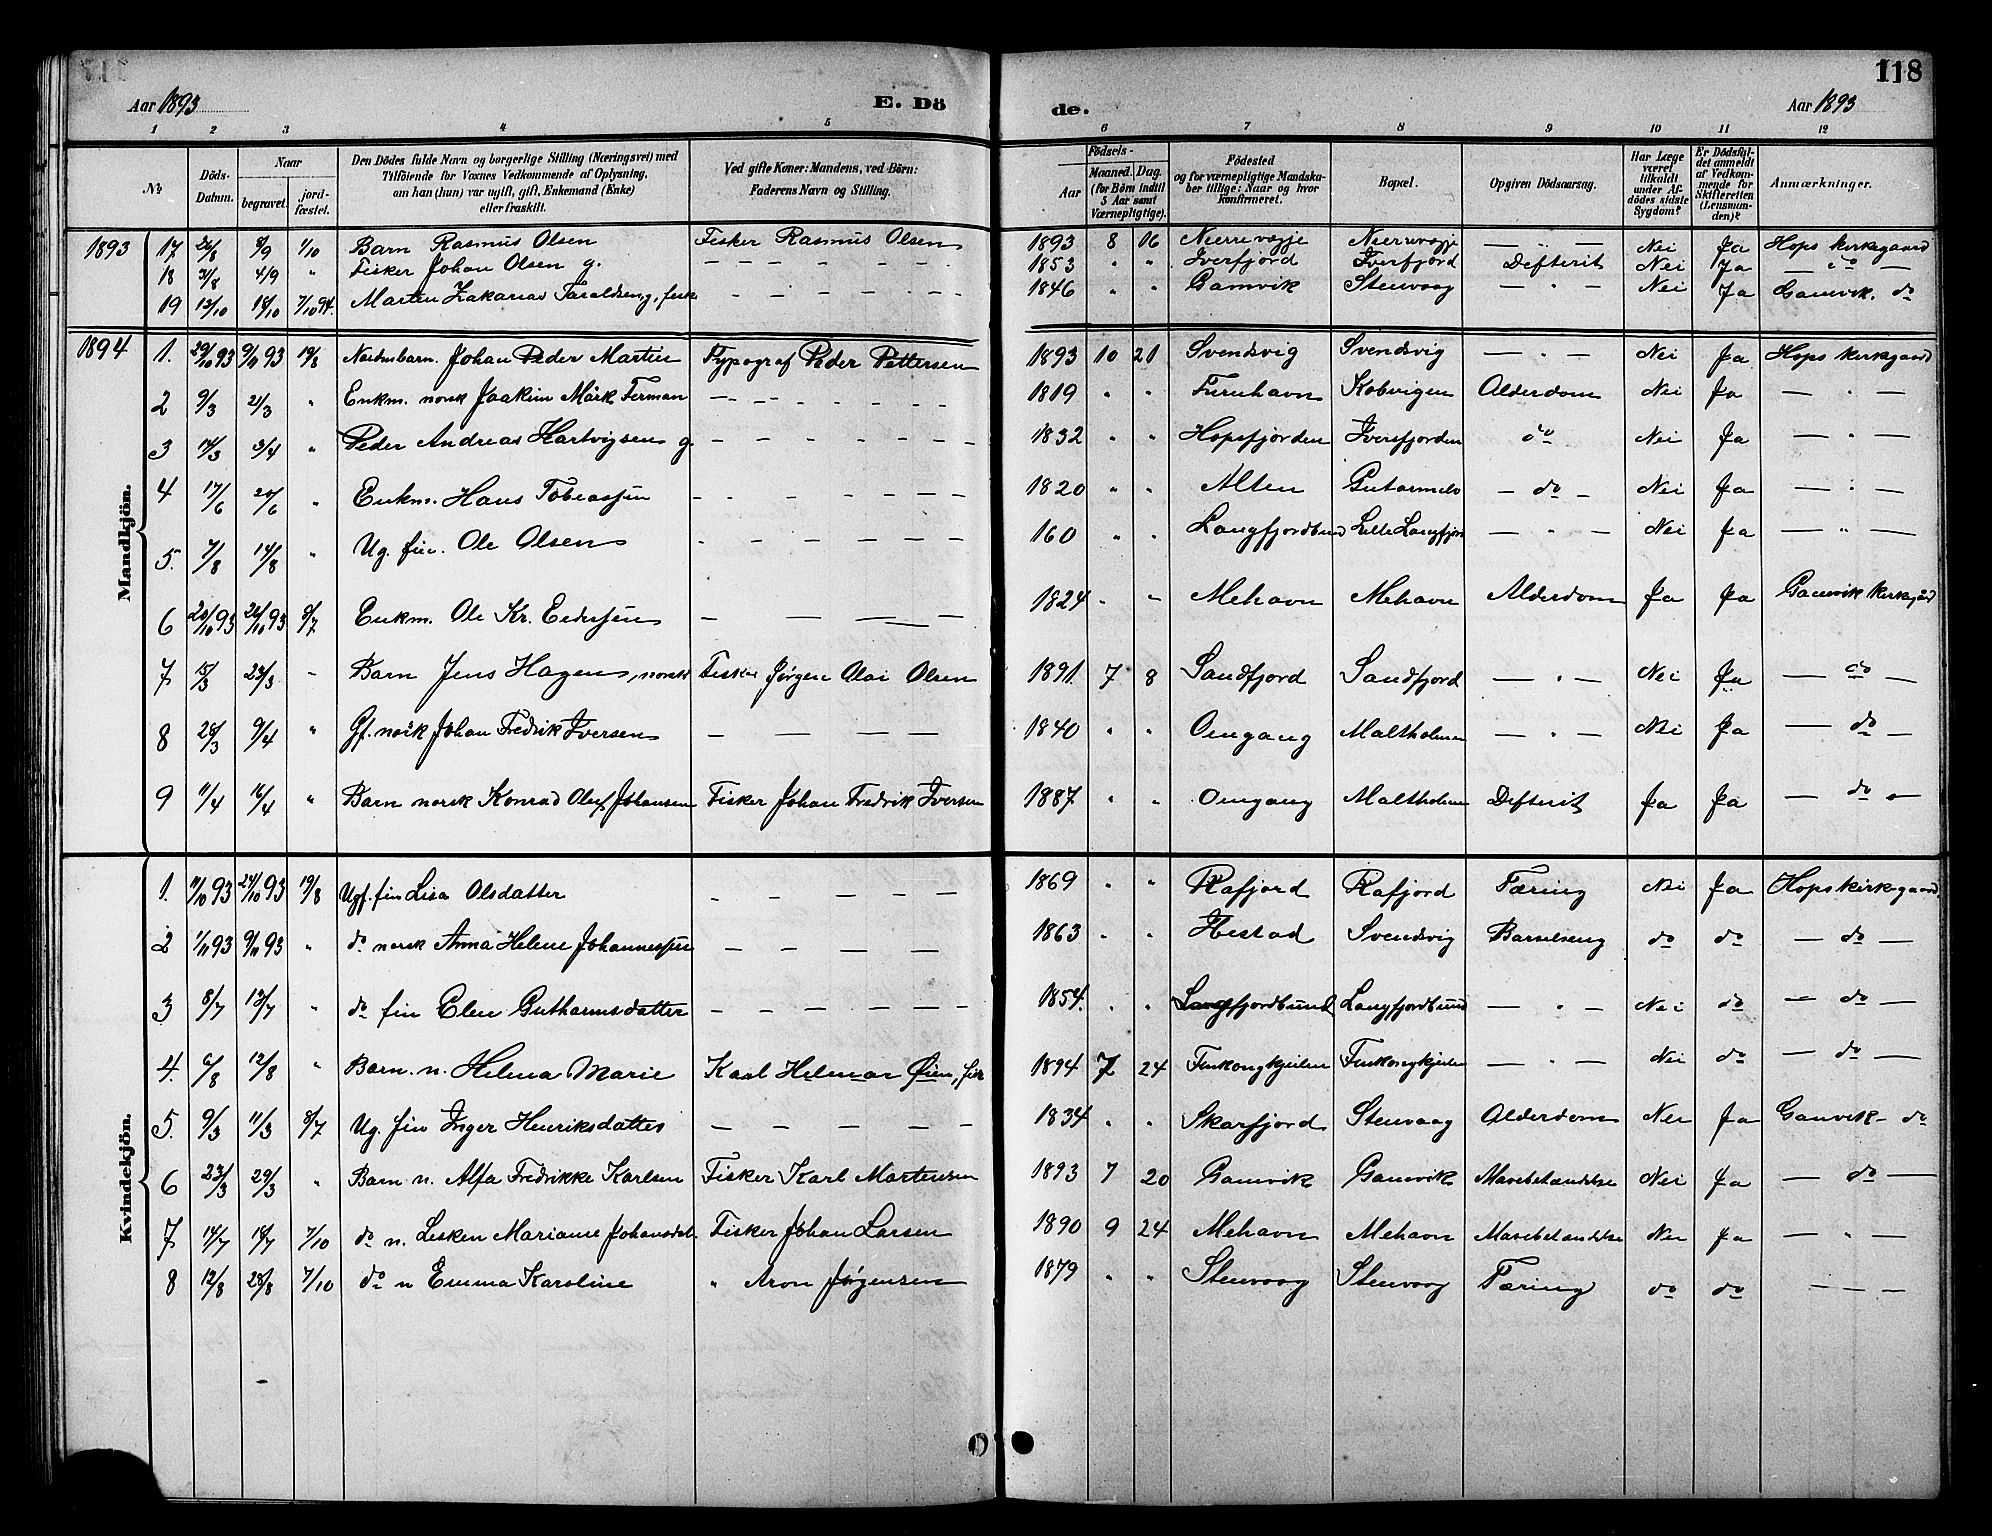 118
Aar 1893 E. Dö de. Aar 1893
1 2 3 4 5 6 7 8 9 10 11 12
No Döds-Datum. Naar begravet. jord-fæstet. Den Dödes fulde Navn og borgerlige Stilling (Næringsvei) med Tilföiende for Voxnes Vedkommende af Oplysning, om han (hun) var ugift, gift, Enkemand (Enke) eller fraskilt. Ved gifte Koner: Mandens, ved Börn: Faderens Navn og Stilling. Födsels- Aar Maaned. Dag. (for Börn indtil 5 Aar samt Værnepligtige). Födested og for værnepligtige Mandskaber tillige: Naar og hvor konfirmeret. Bopæl. Opgiven Dödsaarsag. Har Læge været tilkaldt under Afdödes sidste Sygdom? Er Dödsfaldet anmeldt af Vedkommende for Skifteretten (Lensmanden)? Anmærkninger.
1893 17 26/8 8/9 1/10 Barn Rasmus Olsen Fisker Rasmus Olsen 1893 8 16 — " — Nei Ja Hops Kirkegaard
18 31/8 4/9 " Fisker Johan Olsen g. — 1853 " " Iverfjord Iverfjord Defterit Nei Ja — do —
19 12/10 18/10 7/10 94. Marten Zakarias Taraldsen g. fisk — 1846 " " Gamvik Stenvaag — " — Nei Ja Gamvik. do
Mandkjön.
1894 1. 29/10 93 9/11 93 19/8 Johan Peder Martin Typograf Peder Pettersen 1893 10 21 Svendsvig Svendsvig — " — Nei Ja Hops Kirkegaard
2 9/3 21/3 " Enkm. norsk Joakim Mörk Ferman — 1819 " " Furuhavn Kobvigen Alderdom Nei Ja — " —
3 17/3 3/4 " Peder Andreas Hartvigsen g. — 1832 " " Hopsfjorden Iversfjorden do Nei Ja — " —
4 17/6 20/6 " Enkm. Hans Tobiassen — 1820 " " Alten — do — Nei Ja — " —
5. 7/8 14/8 " Ug. fin. Ole Olsen — 160 " " Langfjordbund Lille Langfjor — " — Nei Ja — " —
6 20/10 93 26/10 93 8/7 Enkm. Ole Kr. — 1824 " " Mehavn Mehavn Alderdom Ja Ja Gamvik Kirkegård
7 15/3 23/3 - Barn Jens Hagen, norsk Fisker Jørgen Olai Olsen 1891. 7 8 Sandfjord Sandfjord — " — Nei Ja — do —
8 28/3 9/4 " Gf. norsk Johan Fredrik Iversen — 1840 " " Omgang Maltholmen — " — Nei Ja — do —
9 11/4 16/4 " Barn norsk Konrad Oluf Johansen Fisker Johan Fredrik Iversen 1887 " " Omgang Maltholmen Defterit Ja Ja — do —
Kvindekjön.
1. 11/10 93 24/10 93 19/8 Ugf. fin Lisa Olsdatter — 1869 " " Rafjord Rafjord Tæring Nei Ja Hops kirkegaard
2 1/11 93 9/11 93 " do norsk Anna Helene Johannessen — 1863 " " Hestad Svendsvig Barselseng do do — do —
3 8/7 13/7 " do fin Elen Guthormsdatter — 1854. " " Langfjordbund Langfjordbund — " — Nei do — do —
4. 6/8 12/8 " Barn. n. Helma Marie Karl Helmar Øien, fisk 1894 7 24 Finkongkjeilen Finkongkjeilen — " — Nei do — do —
5. 9/3 11/3 8/7 Ug. fin Inger Henriksdatter — 1834 " " Skarfjord Stenvaag Alderdom Nei Ja Gamvik - do
6 23/3 29/3 " Barn n. Alfa Fredrikke Karlsen Fisker Karl Martensen 1893 7 20 Gamvik Gamvik Mavebetændelse Nei Ja — do —
7 14/7 18/7 7/10 do n. Lesken Marianne Johansdat. Fisker Johan Larsen 1890 9 24 Mehavn Mehavn Mavebetændelse Nei Ja — " —
8 12/8 28/8 7/10 do n Emma Karoline " Aron Jørgensen 1879 " " Stenvaag Stenvaag Tæring do do — — —